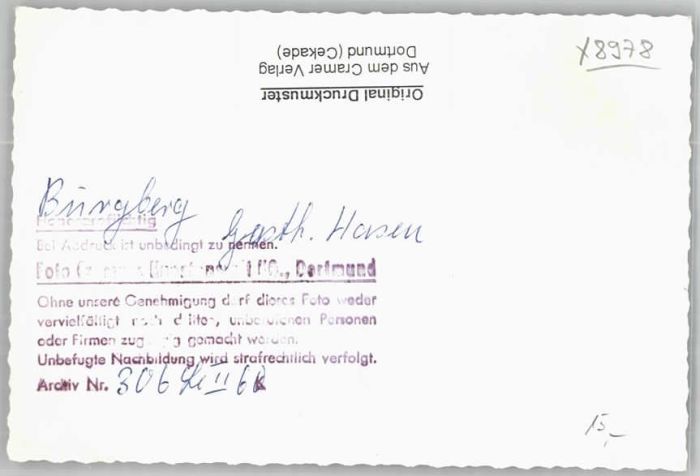 Original Druckmuster
Aus dem Cramer Verlag
Dortmund (Cekade)
X8978
Burgberg
Gasth. Hasen
Honorarpflichtig
Bei Abdruck ist unbedingt zu nennen.
Foto KG., Dortmund
Ohne unsere Genehmigung darf dieses Foto weder
vervielfältigt noch dritten, unberufenen Personen
oder Firmen zugängig gemacht werden.
Unbefugte Nachbildung wird strafrechtlich verfolgt.
Archiv Nr. 306 II 6
15,-